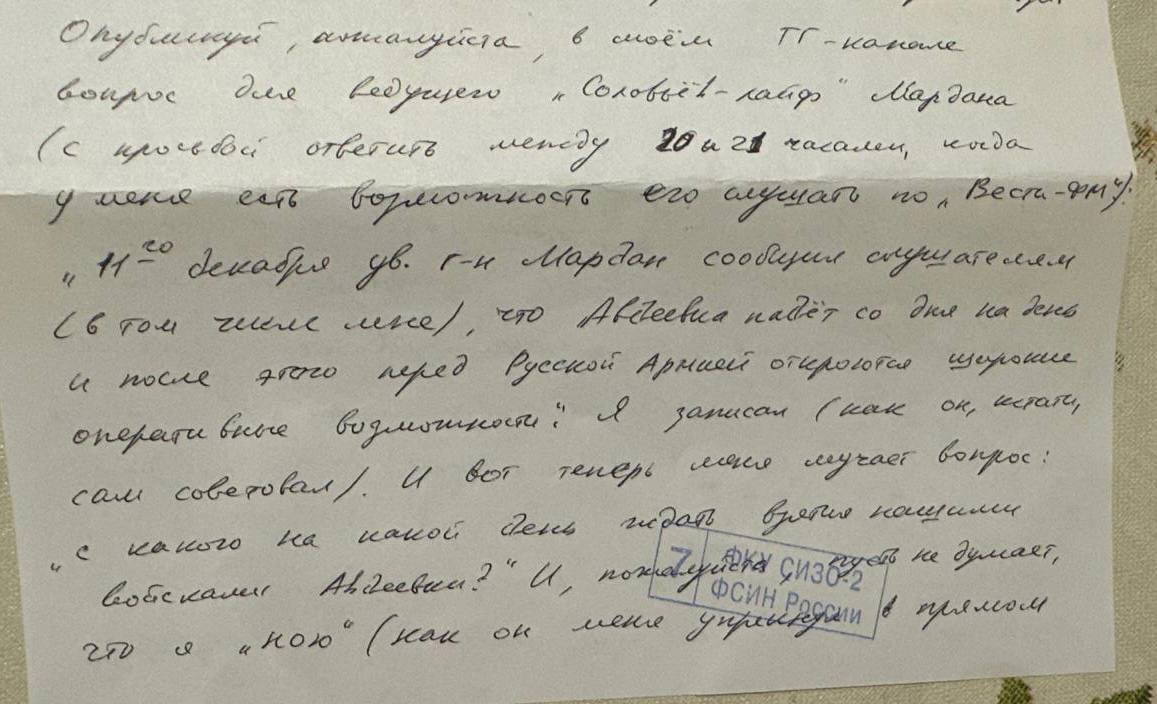 Опубликуй, пожалуйста, в моём ТГ-канале
вопрос для ведущего „Соловьёв-лайф" Мардана
(с просьбой ответить между 20 и 21 часами, когда
у меня есть возможность его слушать по „Вести-ФМ"):
„11го декабря ув. г-н Мардан сообщил слушателям
(в том числе мне), что „Авдеевка падёт со дня на день
и после этого перед Русской Армией откроются широкие
оперативные возможности". Я записал (как он, кстати,
сам советовал). И вот теперь меня мучает вопрос:
„с какого на какой день ждать взятия нашими
войсками Авдеевки?" И, пожалуйста, пусть не думает,
что я „ною" (как он меня упрекнул в прямом
7 ФКУ СИЗО-2
ФСИН России